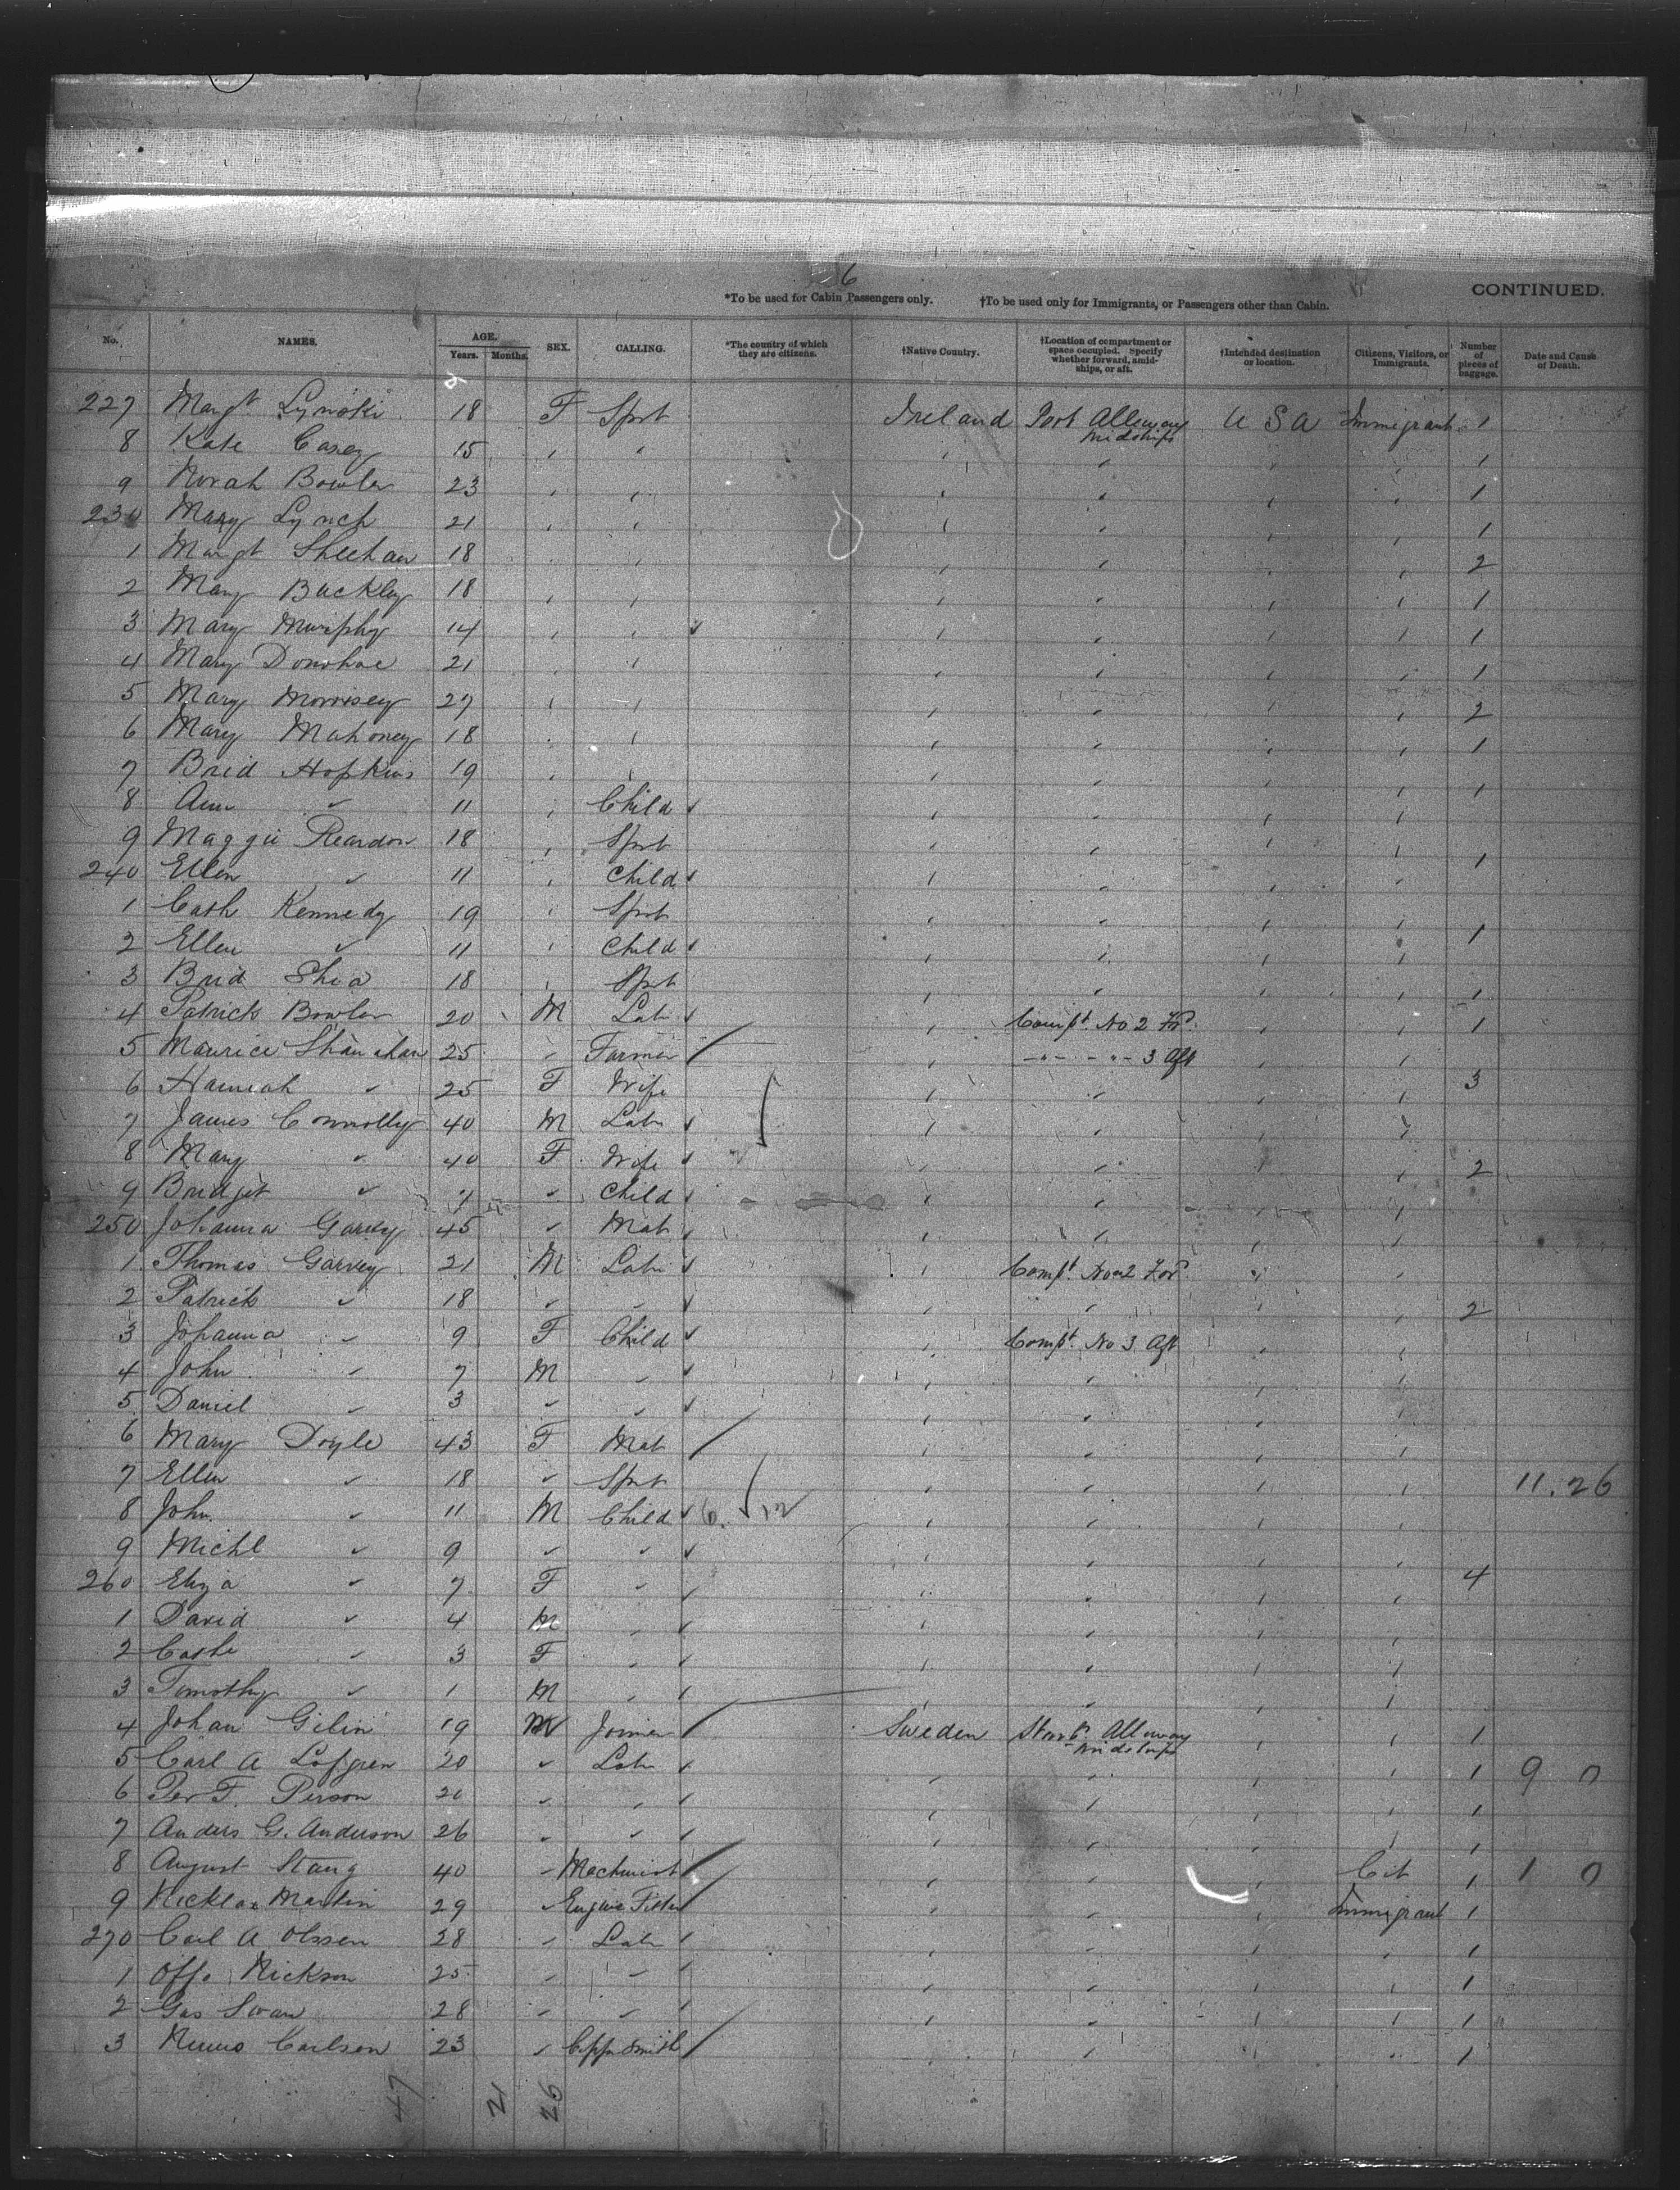 6
*To be used for Cabin Passengers only. †To be used only for Immigrants, or Passengers other than Cabin. CONTINUED.
No. NAMES. AGE. Years. Months. SEX. CALLING. *The country of which they are citizens. †Native Country. †Location of compartment or space occupied. Specify whether forward, amidships, or aft. †Intended destination or location. Citizens, Visitors, or Immigrants. Number of pieces of baggage. Date and Cause of Death.
227 Margt 18 F Sprt Ireland Port Alleway midships U S A Immigrant 1
8 Kate Casey 15 " " " " " " 1
9 Norah Bowler 23 " " " " " " 1
230 Mary Lynch 21 " " " " " " 1
1 Margt Sheehan 18 " " " " " " 2
2 Mary Buckley 18 " " " " " " 1
3 Mary Murphy 14 " " " " " " 1
4 Mary Donohoe 21 " " " " " " 1
5 Mary Morrisey 27 " " " " " " 2
6 Mary Mahoney 18 " " " " " " 1
7 Brid Hopkins 19 " " " " " " 1
8 Ann " 11 " Child " " " "
9 Maggie Reardon 18 " Sprt " " " " 1
240 Ellen " 11 " Child " " " "
1 Cath Kennedy 19 " Sprt " " " " 1
2 Ellen " 11 " Child " " " "
3 Brid Shea 18 " Sprt " " " " 1
4 Patrick Bowler 20 M Labr " Compt No 2 Fd " " 1
5 Maurice Shanahan 25 " Farmer " " " 3 Aft " "
6 Hannah " 25 F Wife " " " " 3
7 James Connolly 40 M Labr " " " "
8 Mary " 40 F Wife " " " " 2
9 Bridget " 7 " Child " " " "
250 Johanna Garvey 45 " Mat " " " "
1 Thomas Garvey 21 M Labr " Compt No 2 Ford " "
2 Patrick " 18 " " " " " " 2
3 Johanna " 9 F Child " Compt No 3 Aft " "
4 John " 7 M " " " " "
5 Daniel " 3 " " " " " "
6 Mary Doyle 43 F Mat " " " "
7 Ellen " 18 " Sprt " " " " 11.26
8 John " 11 M Child 12 " " " "
9 Michl " 9 " " " " " "
260 Eliza " 7 F " " " " " 4
1 David " 4 M " " " " "
2 Cathe " 3 F " " " " "
3 Timothy " 1 M " " " " "
4 Johan Gilin 19 M Joiner Sweden Starb. Alleway midships " " 1
5 Carl A Lofgren 20 " Labr " " " " 1 9 0
6 Per F. Person 20 " " " " " " 1
7 Anders G. Anderson 26 " " " " " " 1
8 August Stang 40 " Machinist " " " Cit 1 1 0
9 Nicklas Martin 29 " Engine Fitter " " " Immigrant 1
270 Carl A Olssen 28 " Labr " " " " 1
1 Nickson 25 " " " " " " 1
2 Gus Swan 28 " " " " " " 1
3 Carlson 23 " Coppersmith " " " " 1
47 21 26